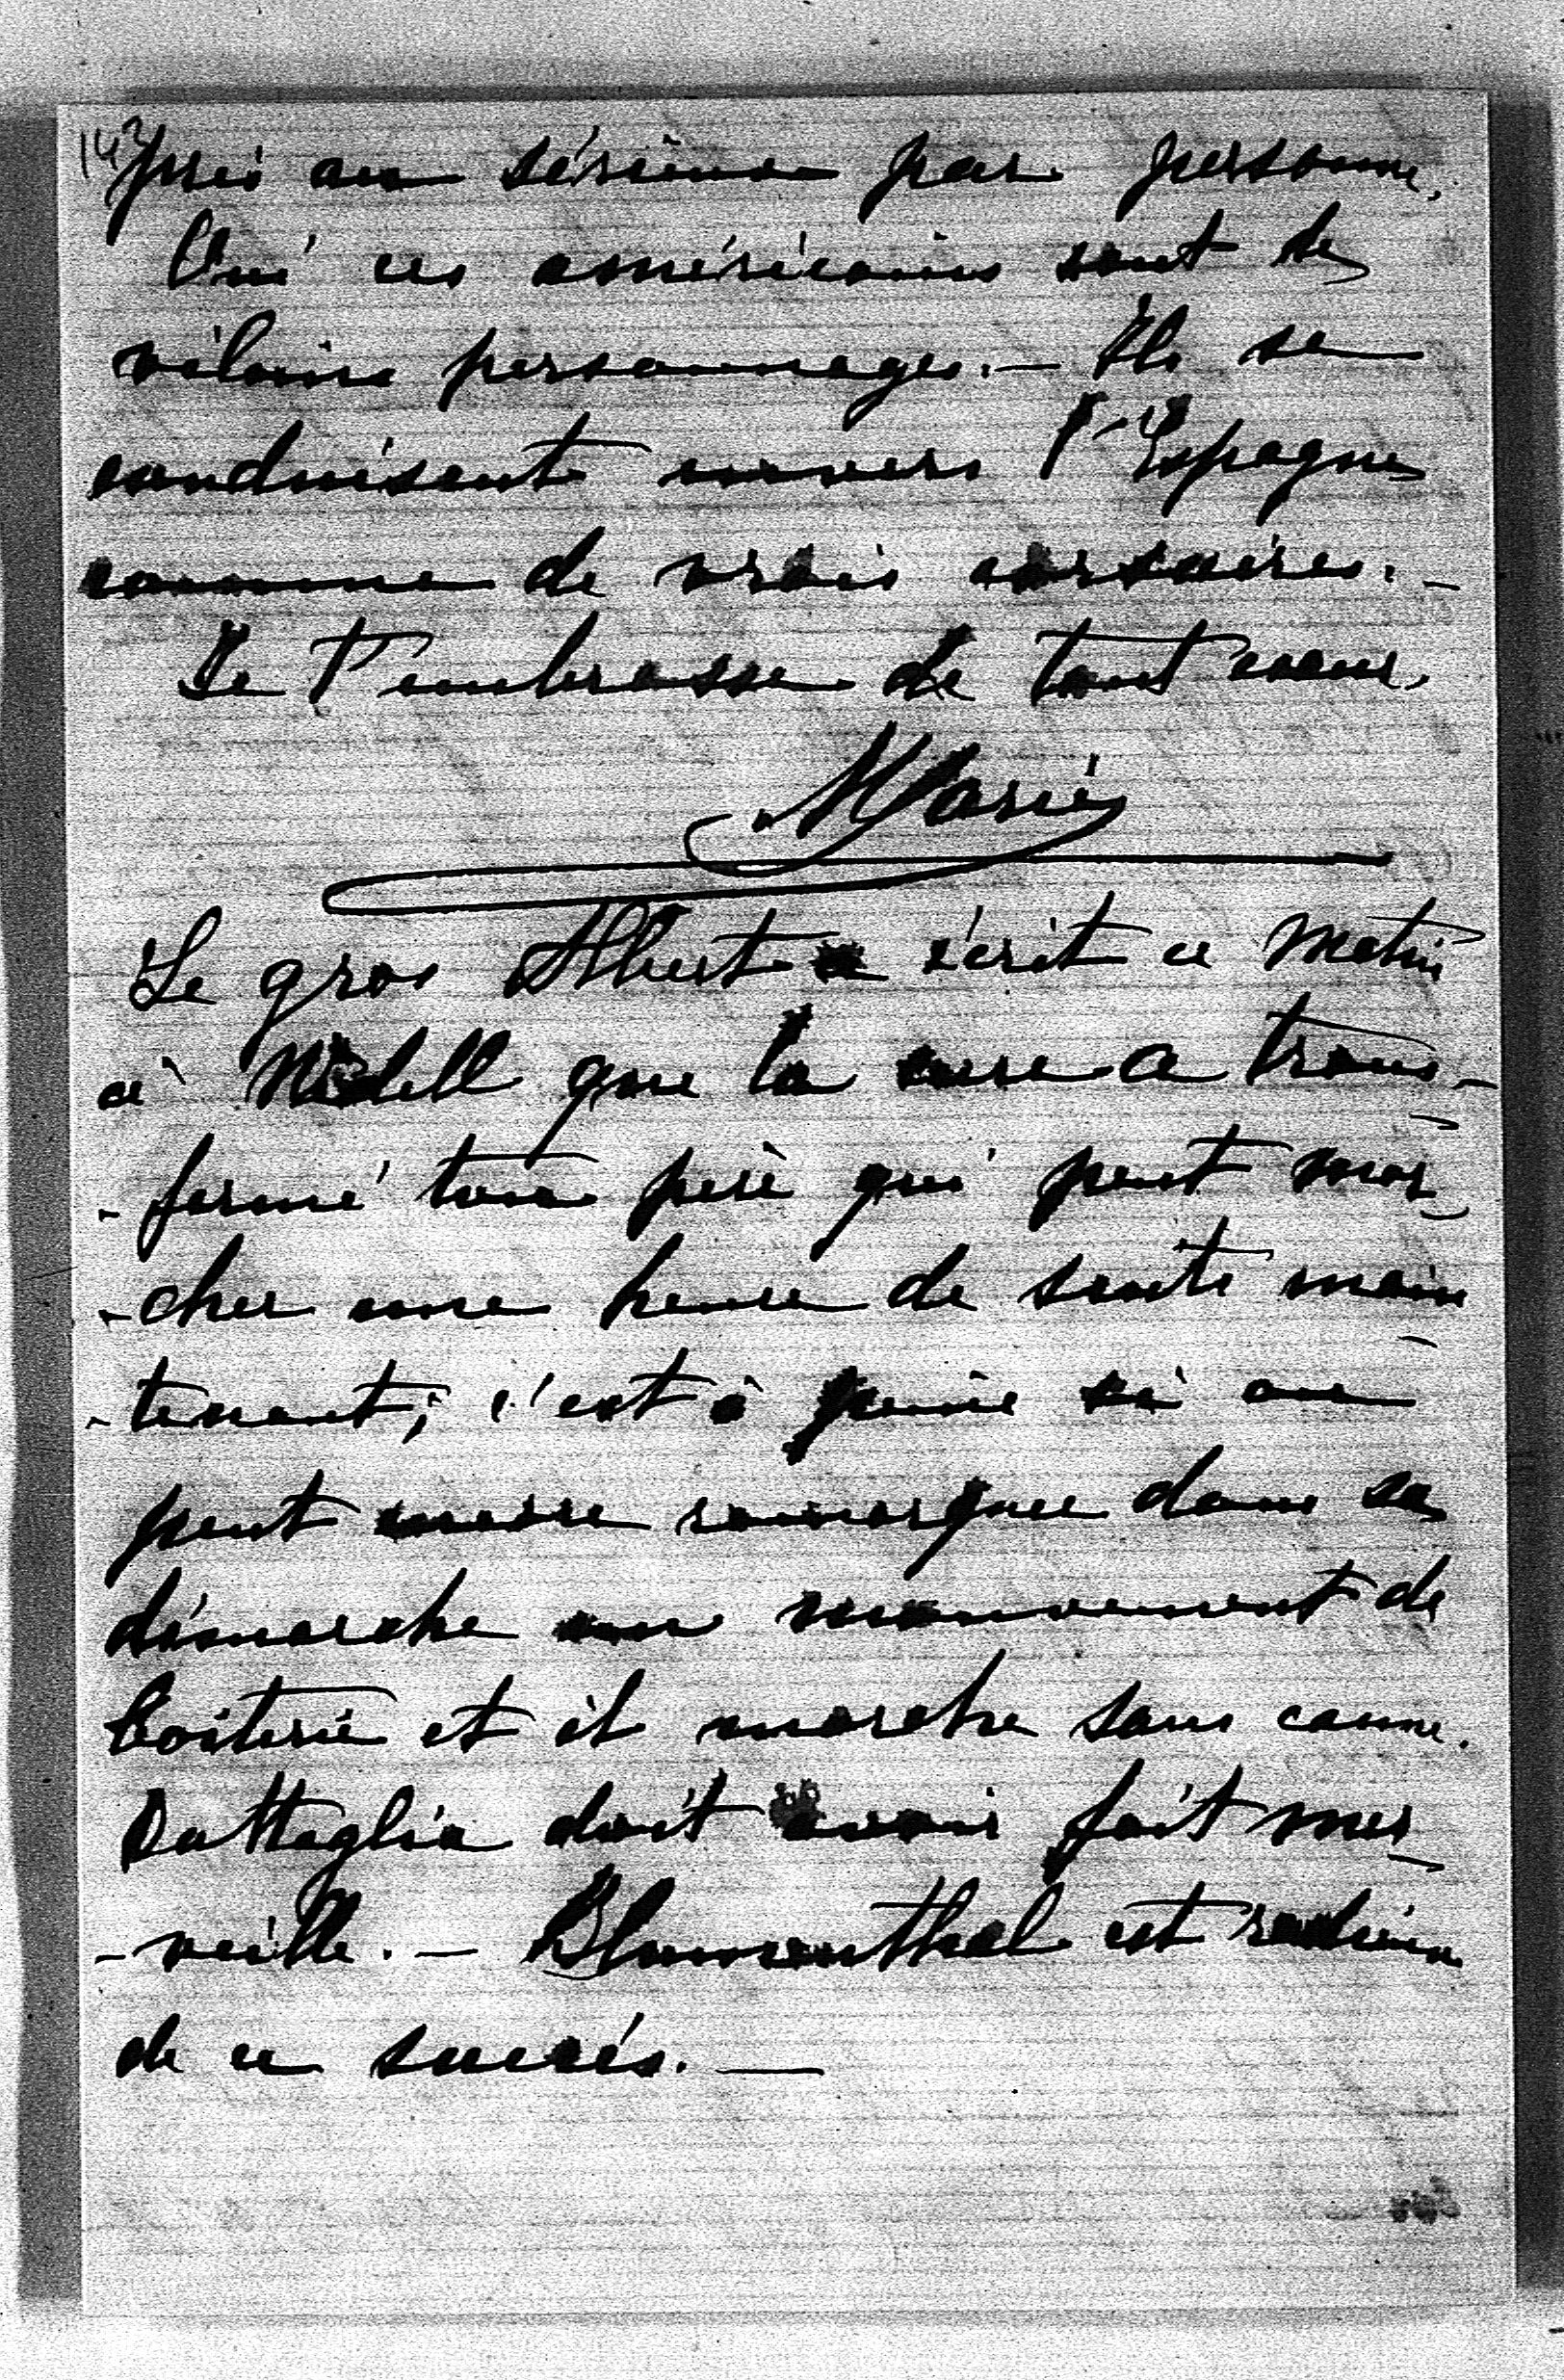 pris au sérieux par personne.
Oui ces américains sont de
vilains personnages. — Ils se
conduisent envers l'Espagne
comme de vrais corsaires. —
Je t'embrasse de tout cœur.
Marie
Le gros Albert a écrit ce matin
à que la cure a trans-
-formé ton père qui peut mar-
-cher une heure de suite main-
-tenant; c'est à peine si on
peut encore remarquer dans sa
démarche un mouvement de
boiterie et il marche sans canne.
Battaglia doit avoir fait mer-
-veille. — Blumenthal est radieux
de ce succés. —